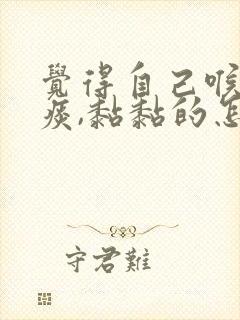 覺得自己喉
痰,黏黏的怎
守君難